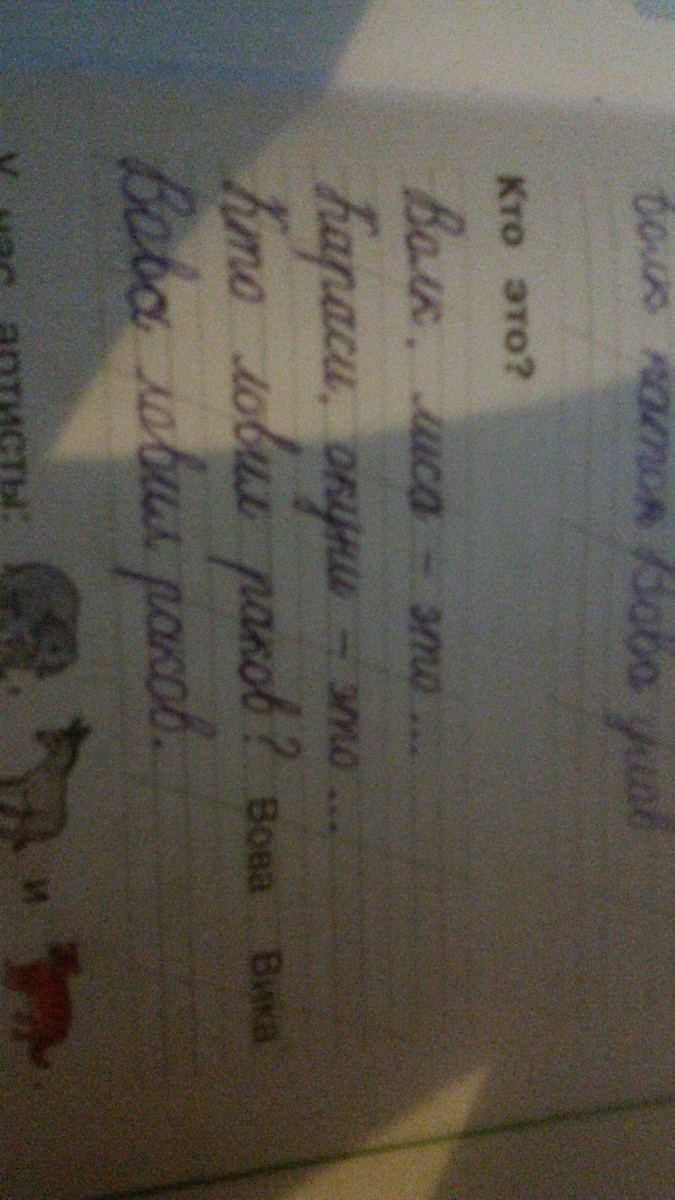 Вова
Кто это?
Волк, лиса – это ...
Караси, окуни – это ...
Кто ловил раков? Вова Вика
Вова ловил раков.
У нас артисты: и